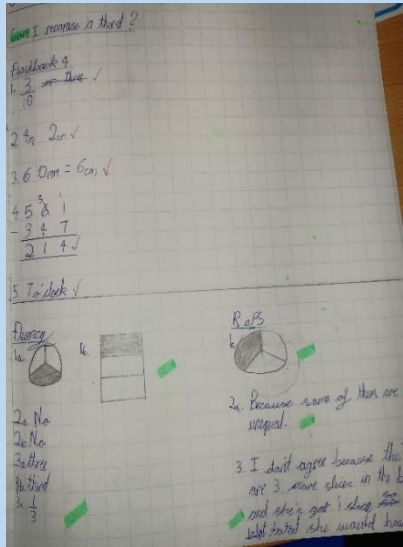 Can I recognise a third?
Flashback 4
1. 3/10
2. 2cm
3. 60mm = 6cm
4. 5 6 1
- 3 4 7
2 1 4
5. 7 o'clock
Fluency
1a.
1b.
2a. No
2c. No
3a. three
3b. third
3c. 1/3
R & PS
1.
2a. Because some of them are
unequal.
3. I don't agree because the
are 3 more slices in the
and she's got 1 slice
she would